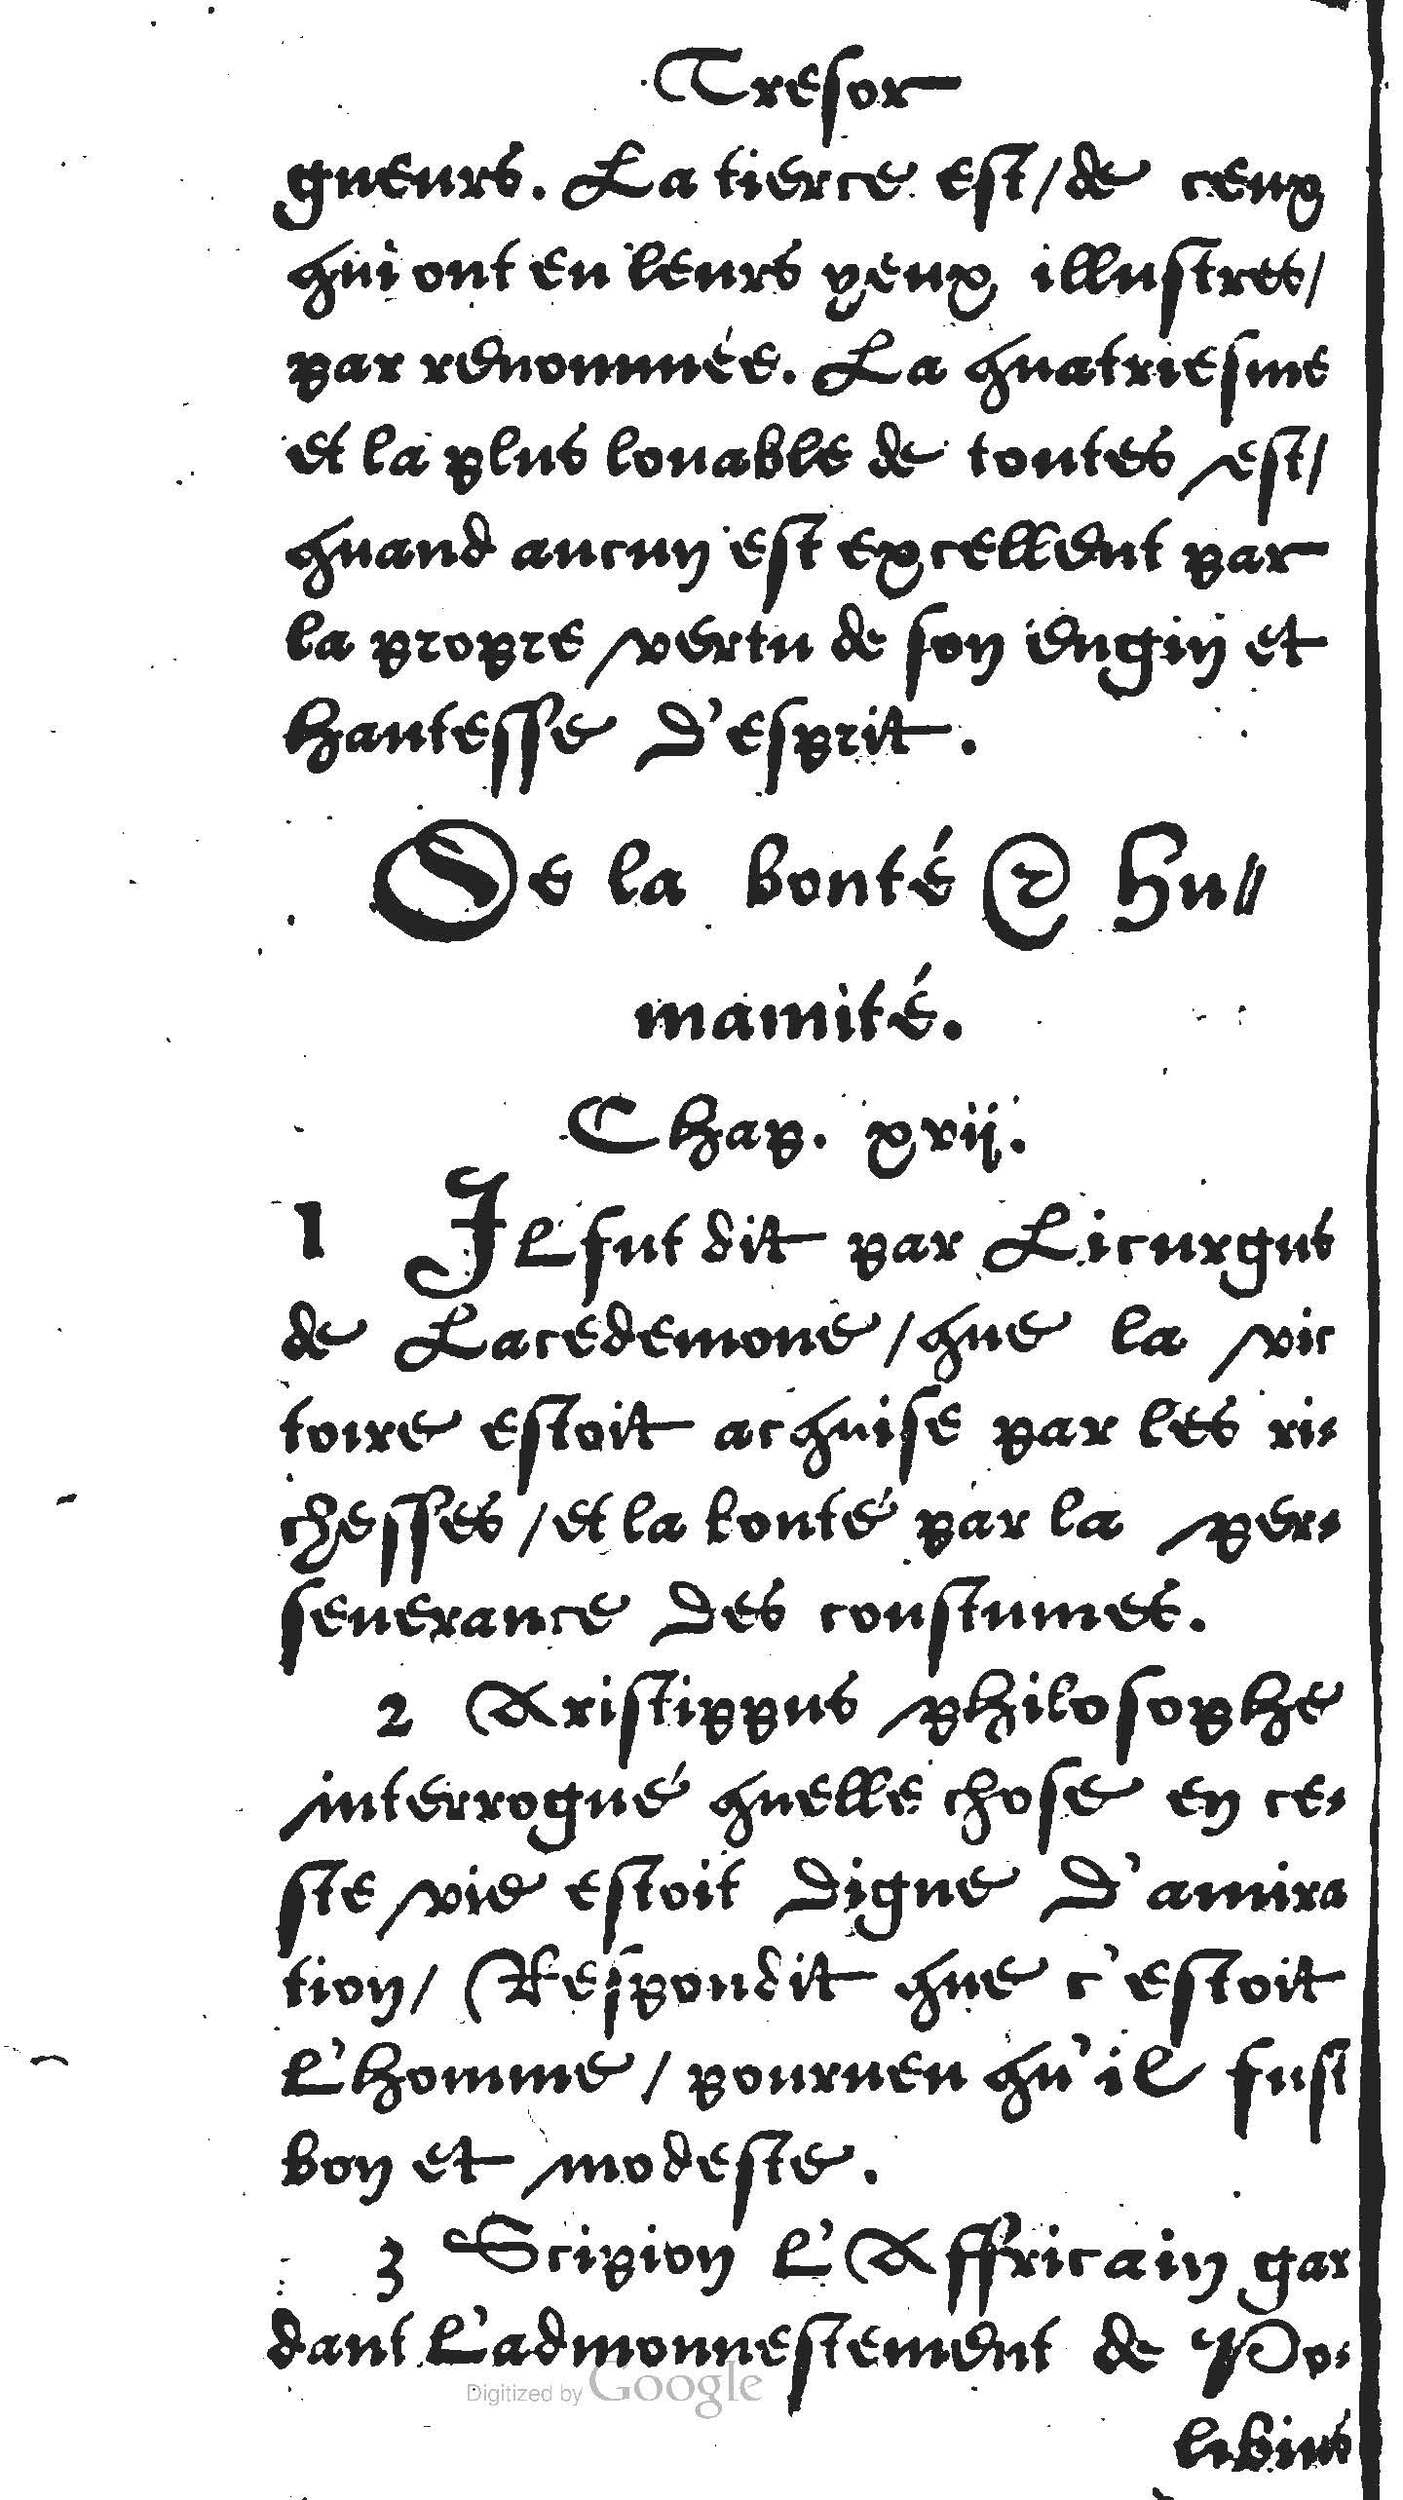 Tresor
gneurs. La tierce est/ de ceux
qui ont en leurs yeux illustres/
par renommée. La quatriesme
et la plus louable de toutes est/
quand aucun est excellent par
la propre vertu de son engin et
hautesse d'esprit.
De la bonté & hu⸗
manité.
Chap. xvij.
1 Il fut dit par Licurgus
de Lacedemone/ que la vic
toire estoit acquise par les ri⸗
chesses/ et la bonté par la per⸗
seuerance des coustumes.
2 Aristippus philosophe
interrogué quelle chose en ce⸗
ste vie estoit digne d'amira
tion/ Respondit que c'estoit
l'homme/ pourueu qu'il fust
bon et modeste.
3 Scipion l'Affricain gar
dant l'admonnestement de Po⸗
libius
Digitized by Google